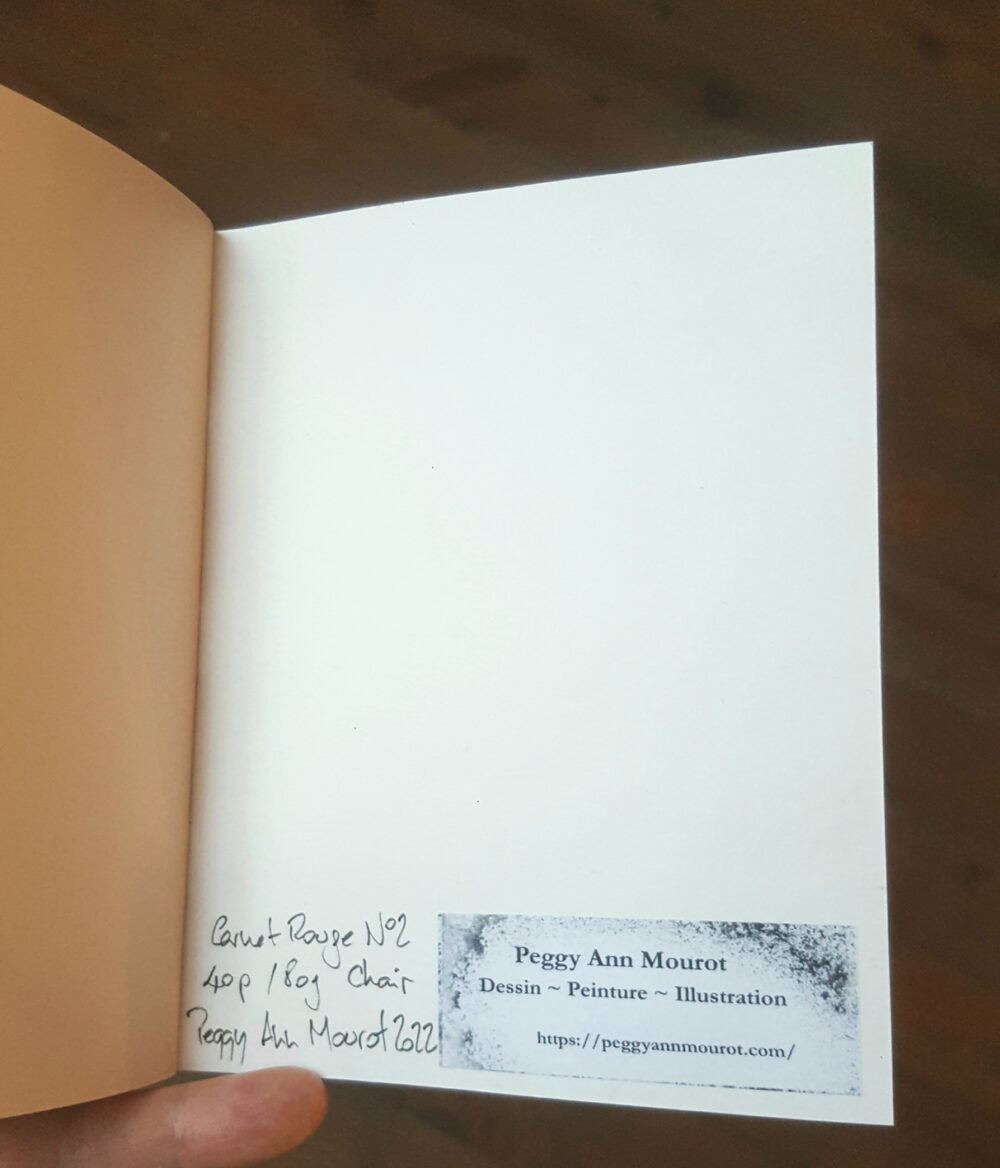 Carnet Rouge Nº2
40p / 80g Chair
Peggy Ann Mourot 2022
Peggy Ann Mourot
Dessin ~ Peinture ~ Illustration
https://peggyannmourot.com/